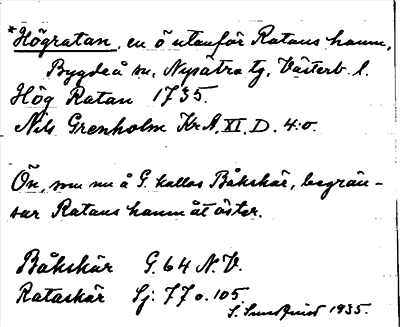 *Högratan, en ö utanför Ratans hamn,
Bygdeå sn, Nysätra tg, Västerb. l.
Hög Ratan 1735.
Nils Grenholm Kr.A. XI. D. 4:o.
Ön, som nu å G. kallas Båkskär, begrän-
sar Ratans hamn åt öster.
Båkskär G. 64 N.V.
Rataskär Sj. 77 o. 105
S. Sundqvist 1935.